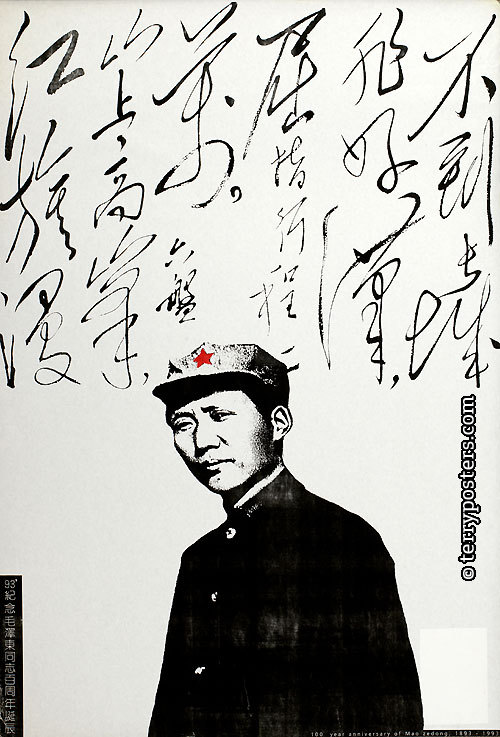 不到長城
非好漢，
屈指行程二
萬。六盤
山上高峯，
紅旗漫
© terryposters.com
93' 紀念毛澤東同志百周年誕辰
100 year anniversary of Mao zedong, 1893 - 1993